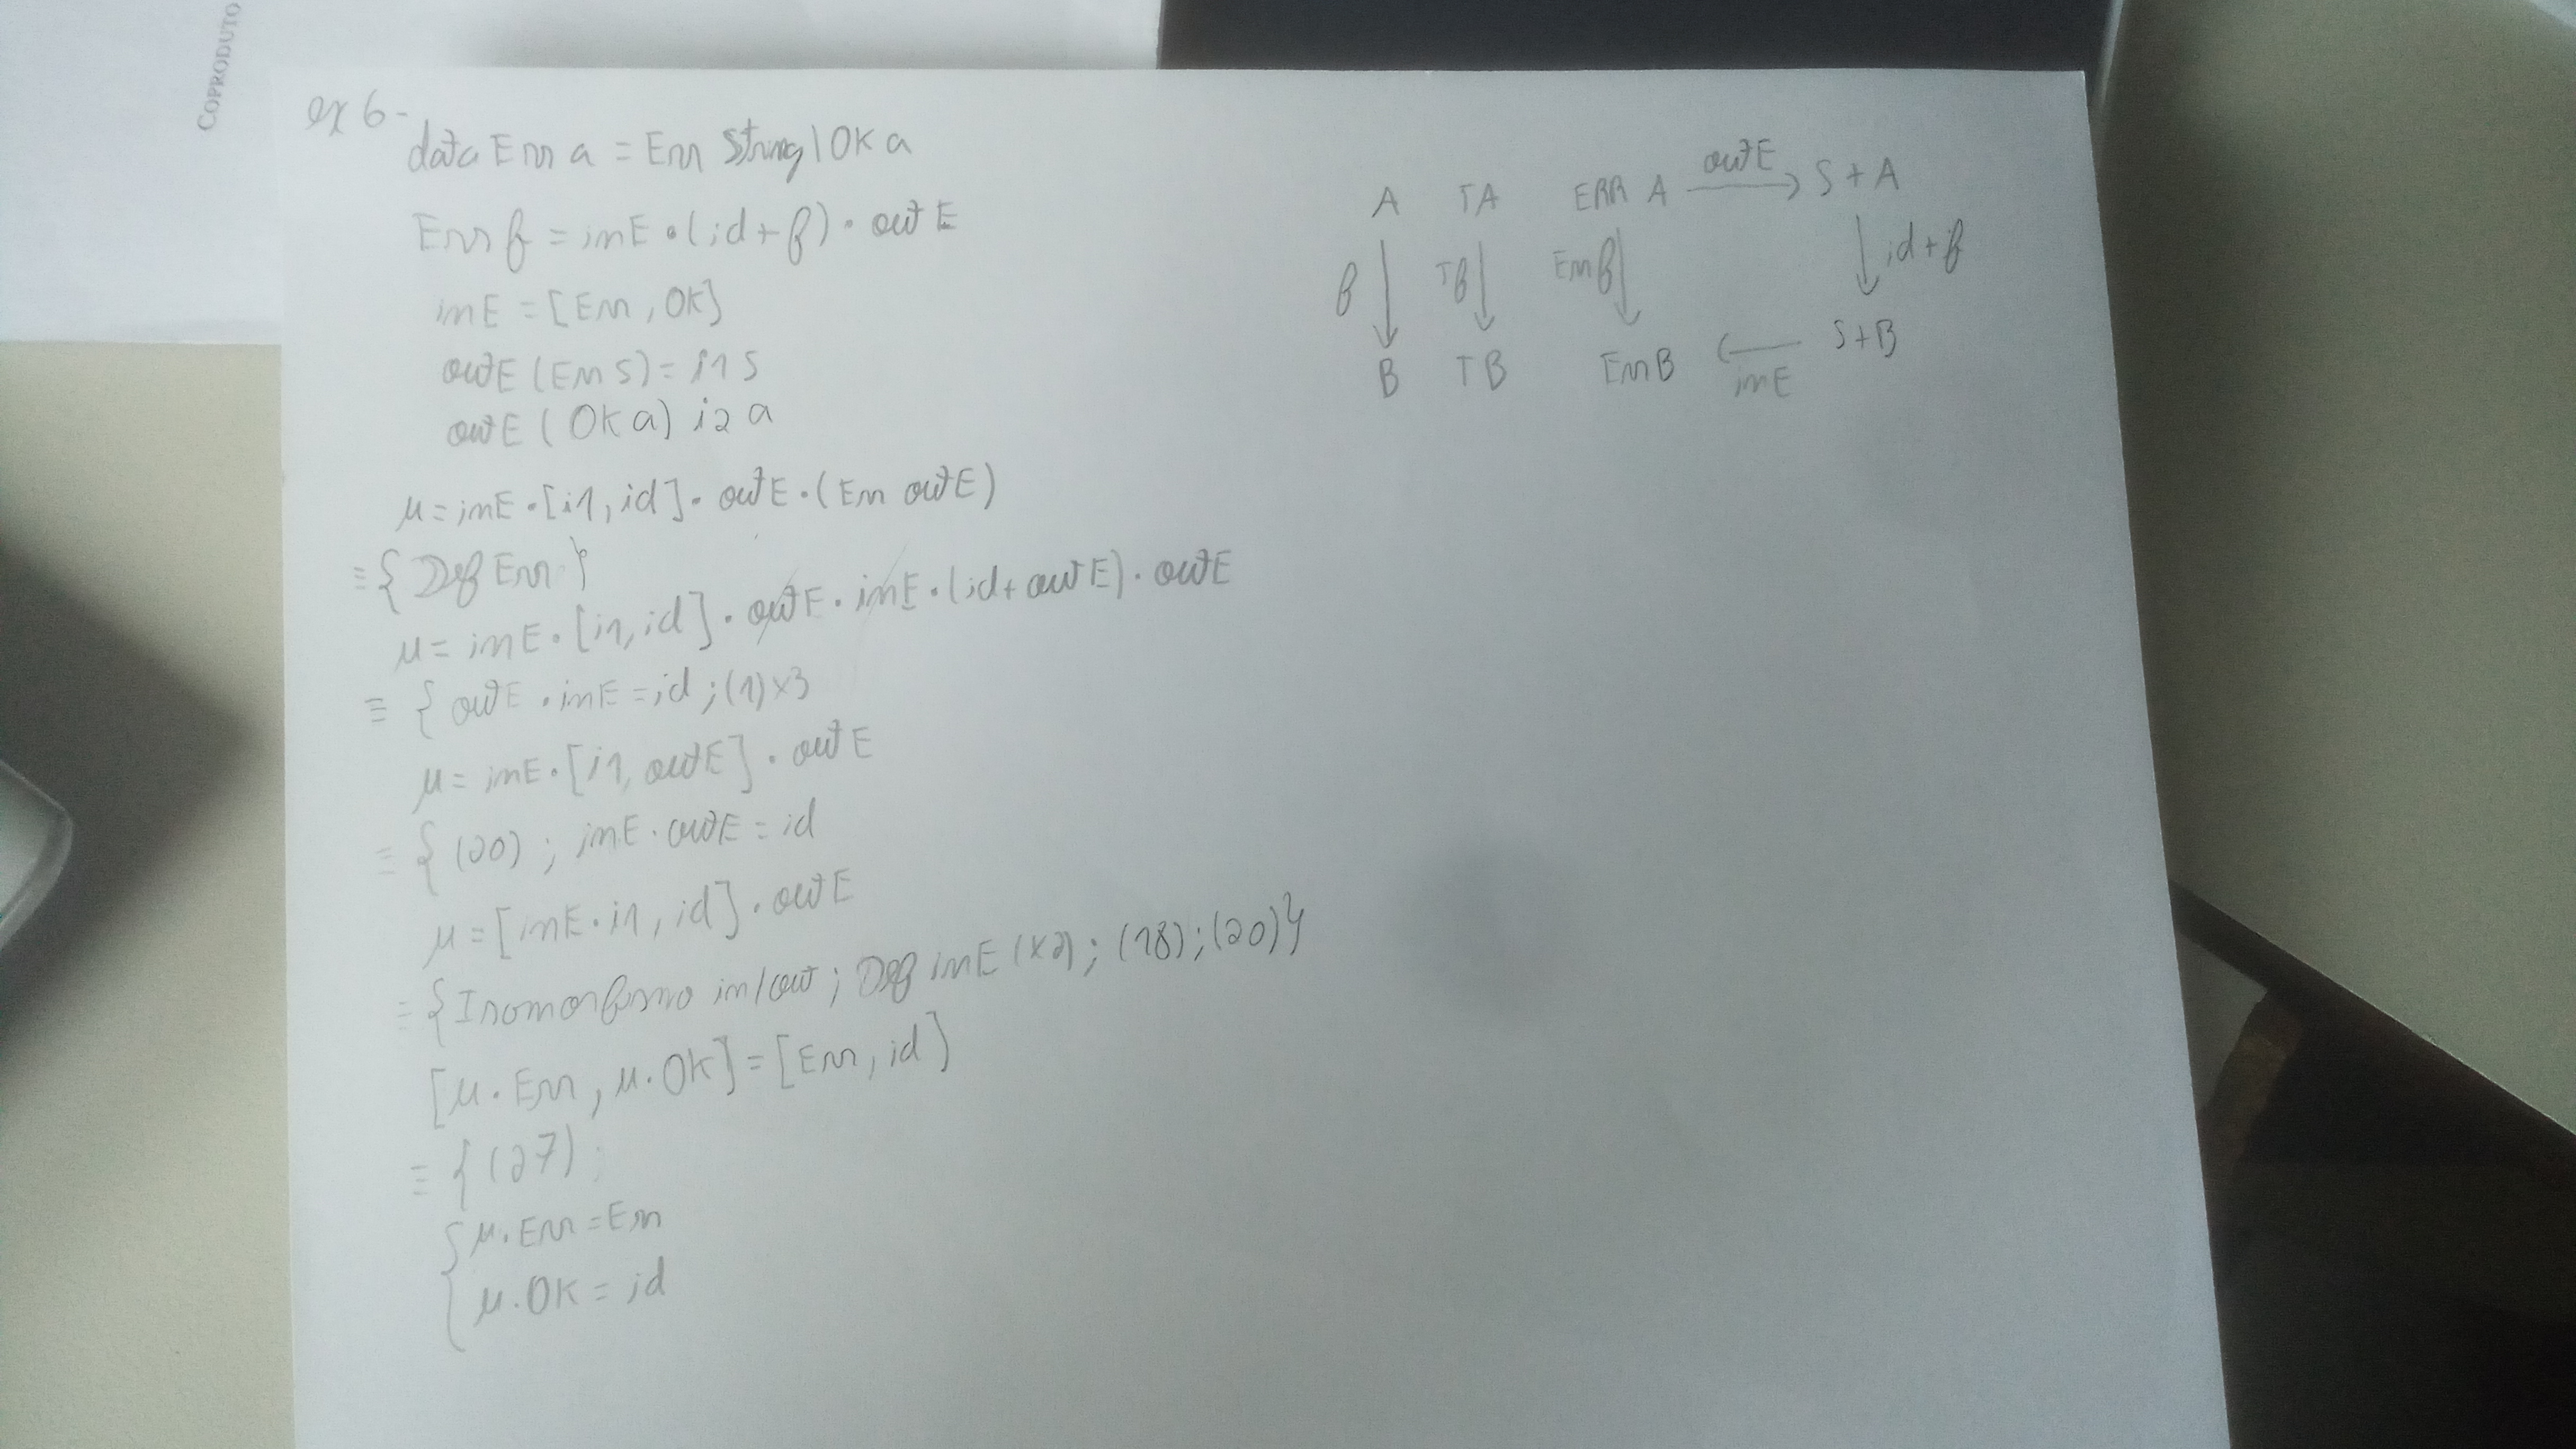 COPRODUTO
ex 6-
data Err a = Err String | OK a
Err f = inE • (id + f) • outE
inE = [Err, OK]
outE (Err s) = i1 s
outE (OK a) i2 a
μ = inE • [i1, id] • outE • (Err outE)
≡ { Def Err }
μ = inE • [i1, id] • outE • inE • (id + outE) • outE
≡ { outE • inE = id ; (1) x3
μ = inE • [i1, outE] • outE
≡ { (20) ; inE • outE = id
μ = [inE • i1, id] • outE
= { Isomorfismo in/out ; Def inE (x2) ; (18) ; (20) }
[μ • Err, μ • OK] = [Err, id]
≡ { (27) ;
{ μ • Err = Err
μ • OK = id
A TA ERR A outE→ S + A
f↓ Tf↓ Err f↓ ↓id + f
B TB Err B ←inE S + B